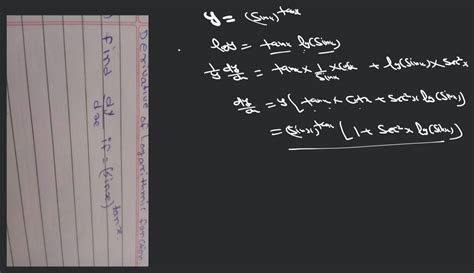 Derivative of Logarithmic function
) find dy/dx if = (sinx)^tanx.
y = (sinx)^tanx
logy = tanx log(sinx)
1/y dy/dx = tanx x 1/sinx x cosx + log(sinx) x sec²x
dy/dx = y [tanx x cotx + sec²x log(sinx)
= (sinx)^tanx [1 + sec²x log(sinx)]